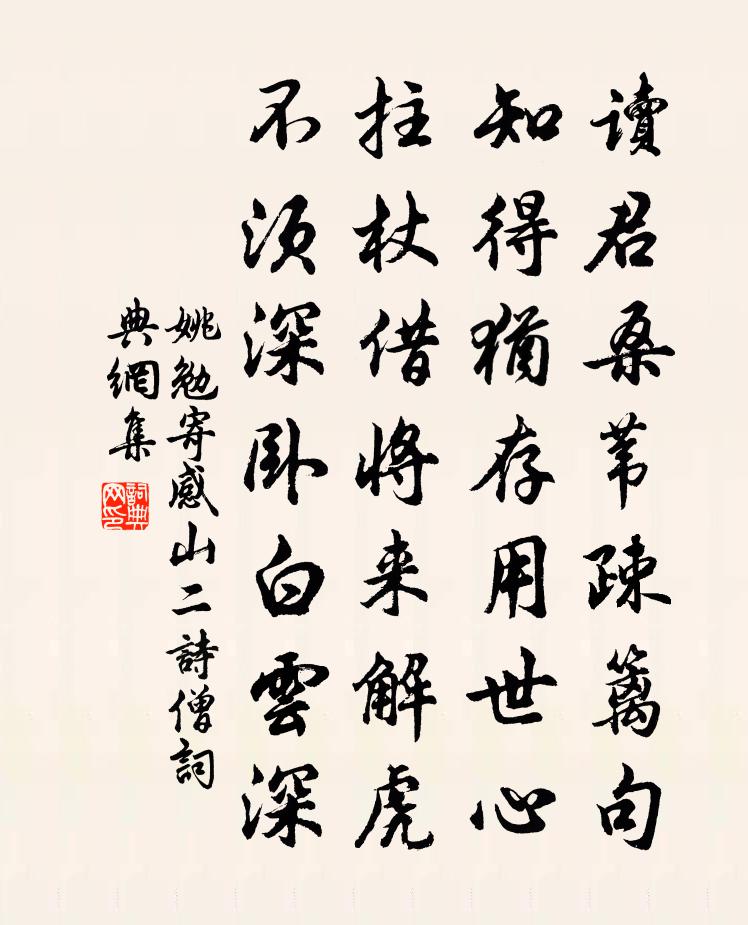 讀君桑苇疎篱句
知得猶存用世心
拄杖借將来解虎
不須深卧白雲深
姚勉寄感山二詩僧詞
典網集
詞典
网印